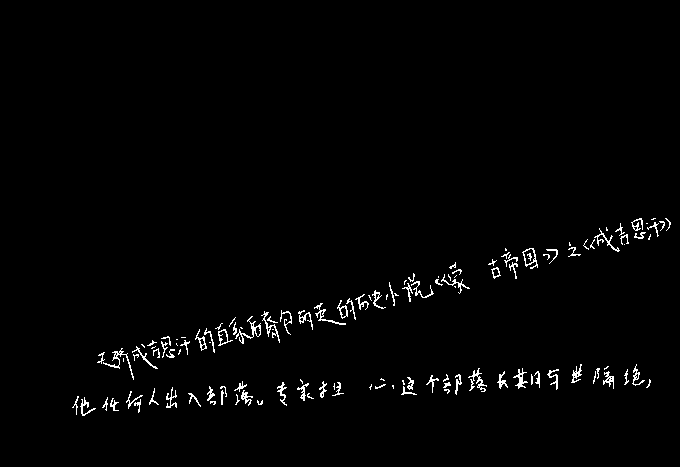 天骄成吉思汗的直系后裔包丽英的历史小说《蒙古帝国》之《成吉思汗》
他任何人出入部落。专家担心,这个部落长期与世隔绝,